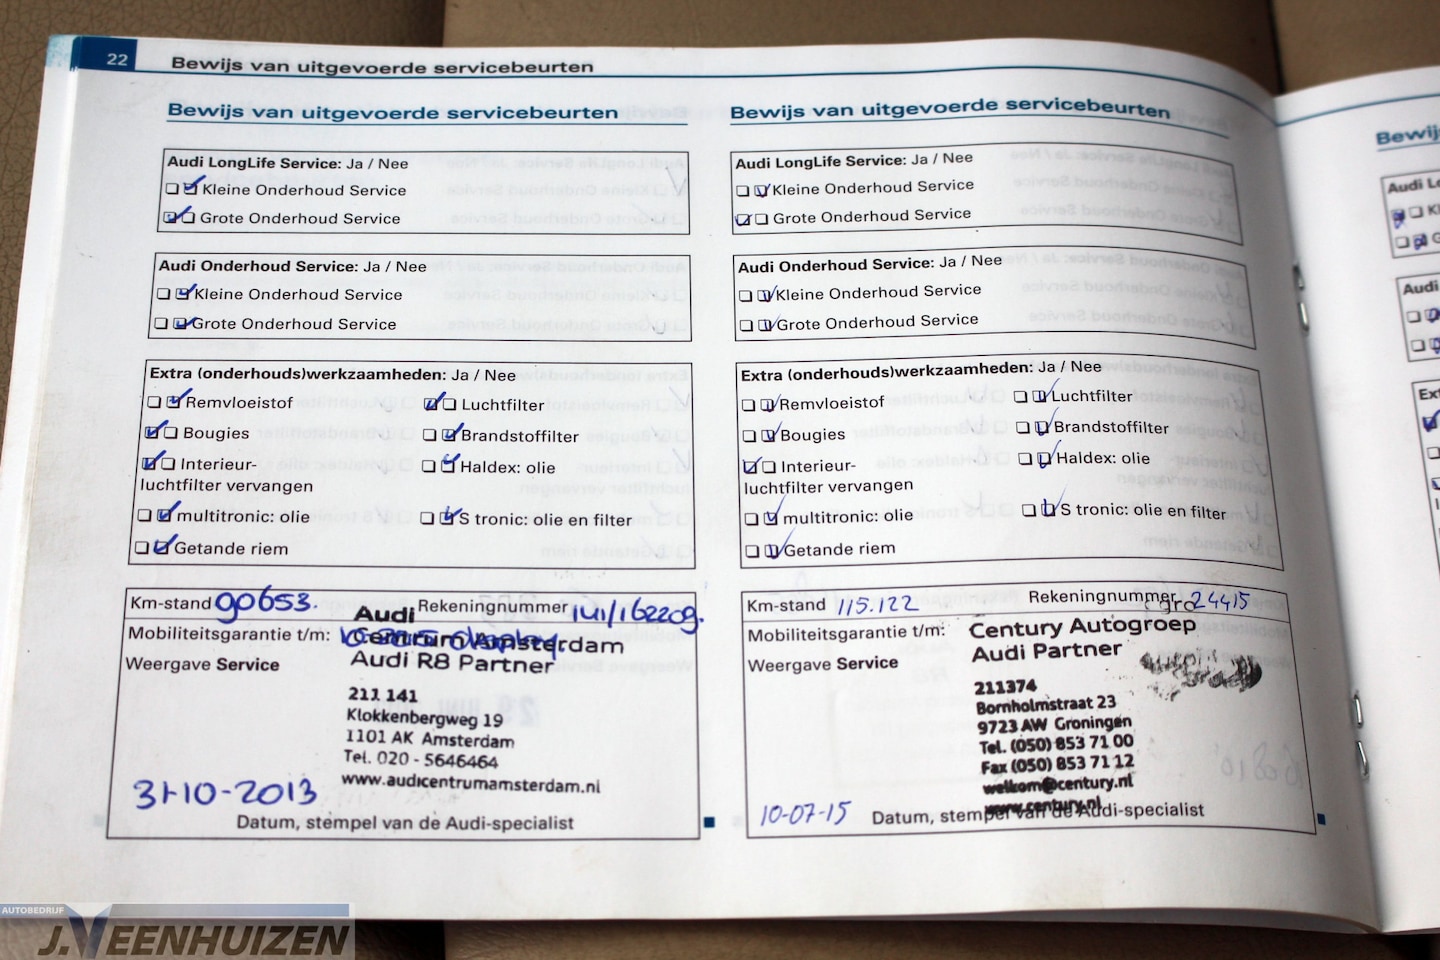 22
Bewijs van uitgevoerde servicebeurten
Bewijs van uitgevoerde servicebeurten
Audi LongLife Service: Ja / Nee
Kleine Onderhoud Service
Grote Onderhoud Service
Audi Onderhoud Service: Ja / Nee
Kleine Onderhoud Service
Grote Onderhoud Service
Extra (onderhouds)werkzaamheden: Ja / Nee
Remvloeistof Luchtfilter
Bougies Brandstoffilter
Interieur- Haldex: olie
luchtfilter vervangen
multitronic: olie S tronic: olie en filter
Getande riem
Km-stand 90653. Rekeningnummer 141/162209.
Mobiliteitsgarantie t/m:
Weergave Service
Audi
Centrum Amsterdam
Audi R8 Partner
211 141
Klokkenbergweg 19
1101 AK Amsterdam
Tel. 020 - 5646464
www.audicentrumamsterdam.nl
31-10-2013
Datum, stempel van de Audi-specialist
Bewijs van uitgevoerde servicebeurten
Audi LongLife Service: Ja / Nee
Kleine Onderhoud Service
Grote Onderhoud Service
Audi Onderhoud Service: Ja / Nee
Kleine Onderhoud Service
Grote Onderhoud Service
Extra (onderhouds)werkzaamheden: Ja / Nee
Remvloeistof Luchtfilter
Bougies Brandstoffilter
Interieur- Haldex: olie
luchtfilter vervangen
multitronic: olie S tronic: olie en filter
Getande riem
Km-stand 115.122 Rekeningnummer 24415
Mobiliteitsgarantie t/m:
Weergave Service
Century Autogroep
Audi Partner
211374
Bornholmstraat 23
9723 AW Groningen
Tel. (050) 853 71 00
Fax (050) 853 71 12
welkom@century.nl
www.century.nl
10-07-15 Datum, stempel van de Audi-specialist
AUTOBEDRIJF
J. VEENHUIZEN